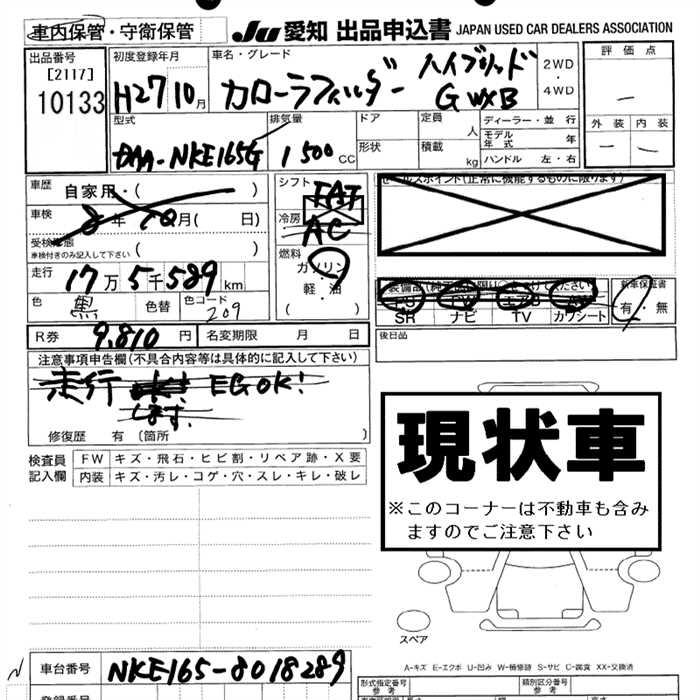 車内保管・守衛保管 JU 愛知 出品申込書 JAPAN USED CAR DEALERS ASSOCIATION
出品番号 初度登録年月 車名・グレード 評価点
[2117]
10133 H27 10月 カローラフィルダー ハイブリッド G WXB 2WD・4WD －
型式 排気量 ドア 定員 人 ディーラー・並行 外装 内装
DAA-NKE165G 1500CC 形状 積載 kg モデル年式 年 － －
ハンドル 左・右
車歴 自家用・( ) シフト FAT
車検 8年10月( 日) 冷房 AC
受検状態 ( )
車検付きのみ記入して下さい
燃料 ガソリン・軽・油 ( )
走行 17万5千589km
色 黒 色替 色コード 209
R券 9,810円 名変期限 月 日
セールスポイント(正常に機能するものに限ります)
新車保証書
有・無
SR ナビ TV カワシート
後日品
注意事項申告欄(不具合内容等は具体的に記入して下さい)
走行 します. EGOK!
修復歴 有 〔箇所 〕
検査員記入欄 FW キズ・飛石・ヒビ割・リペア跡・X要
内装 キズ・汚レ・コゲ・穴・スレ・キレ・破レ
現状車
※このコーナーは不動車も含みますのでご注意下さい
スペア
A-キズ E-エクボ U-凹み W-補修跡 S-サビ C-腐食 XX-交換済
車台番号 NKE165-8018289
形式指定番号 参考 類別区分番号 参考
登録番号